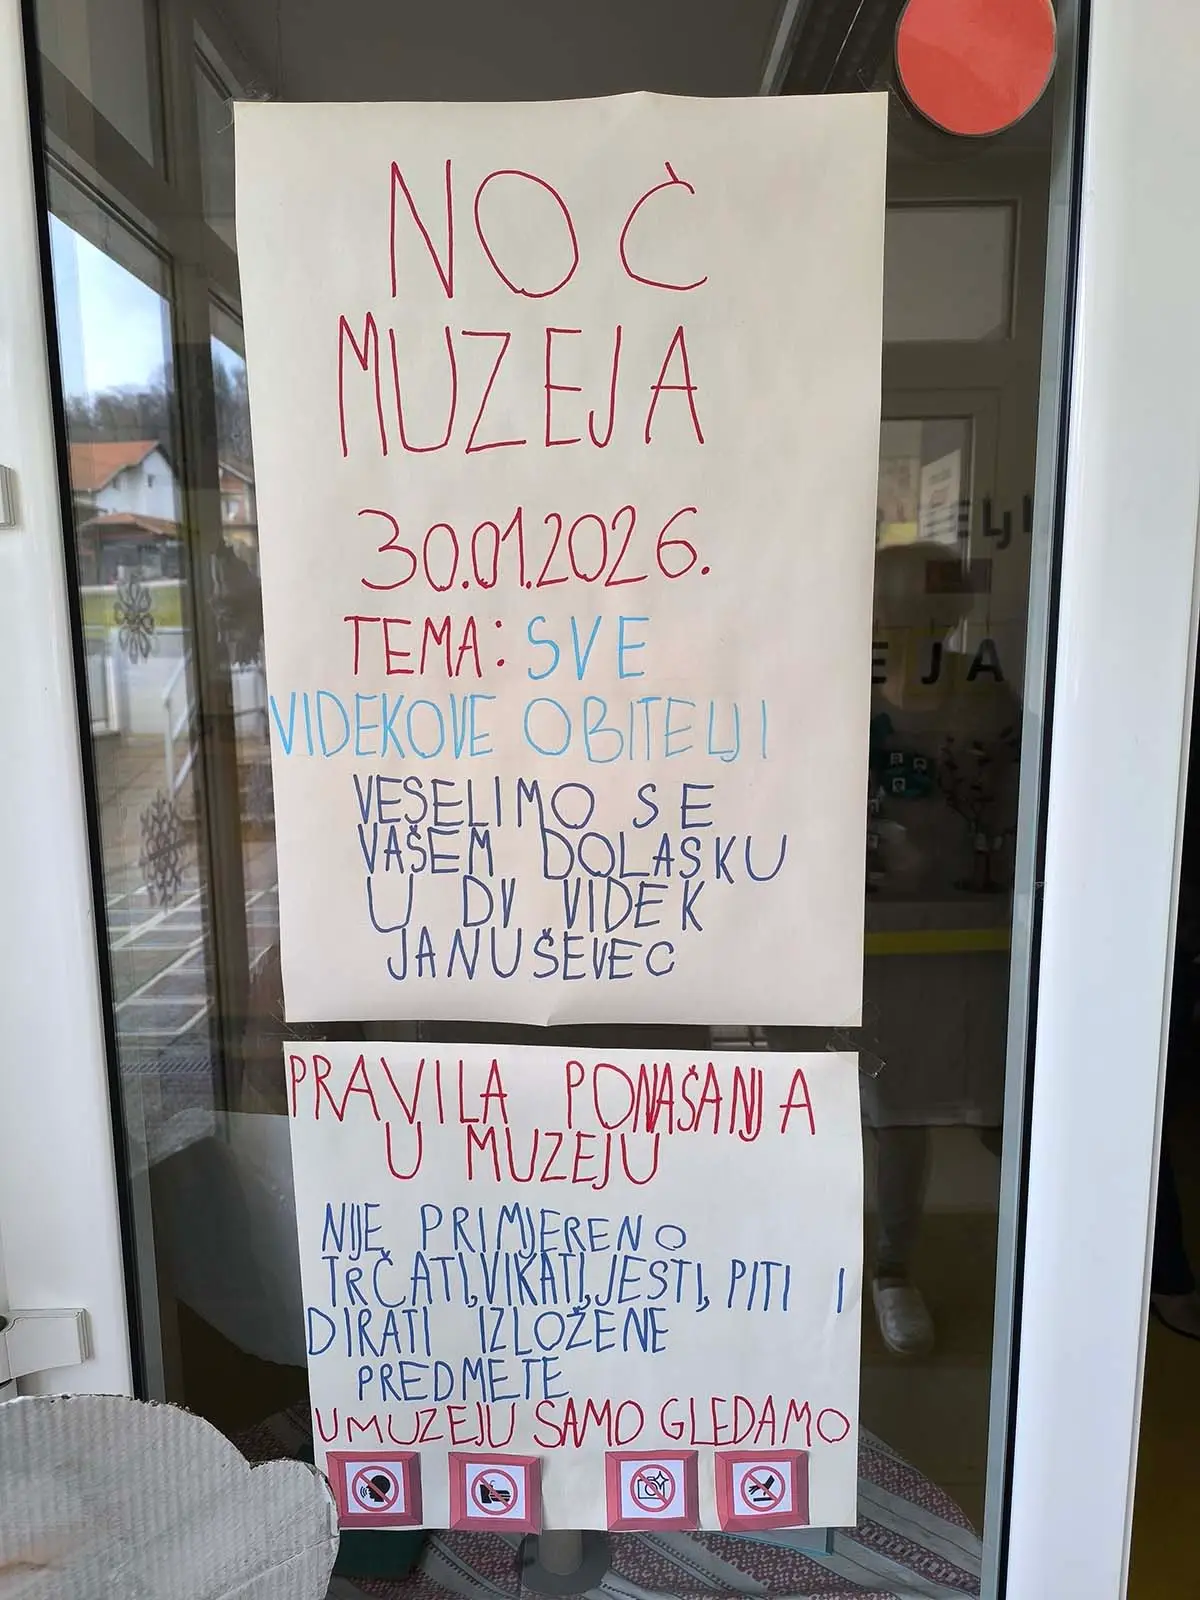 NOĆ
MUZEJA
30.01.2026.
TEMA: SVE
VIDEKOVE OBITELJI
VESELIMO SE
VAŠEM DOLASKU
U DV VIDEK
JANUŠEVEC
PRAVILA PONAŠANJA
U MUZEJU
NIJE PRIMJERENO
TRČATI, VIKATI, JESTI, PITI I
DIRATI IZLOŽENE
PREDMETE
U MUZEJU SAMO GLEDAMO
ELJI
EJA